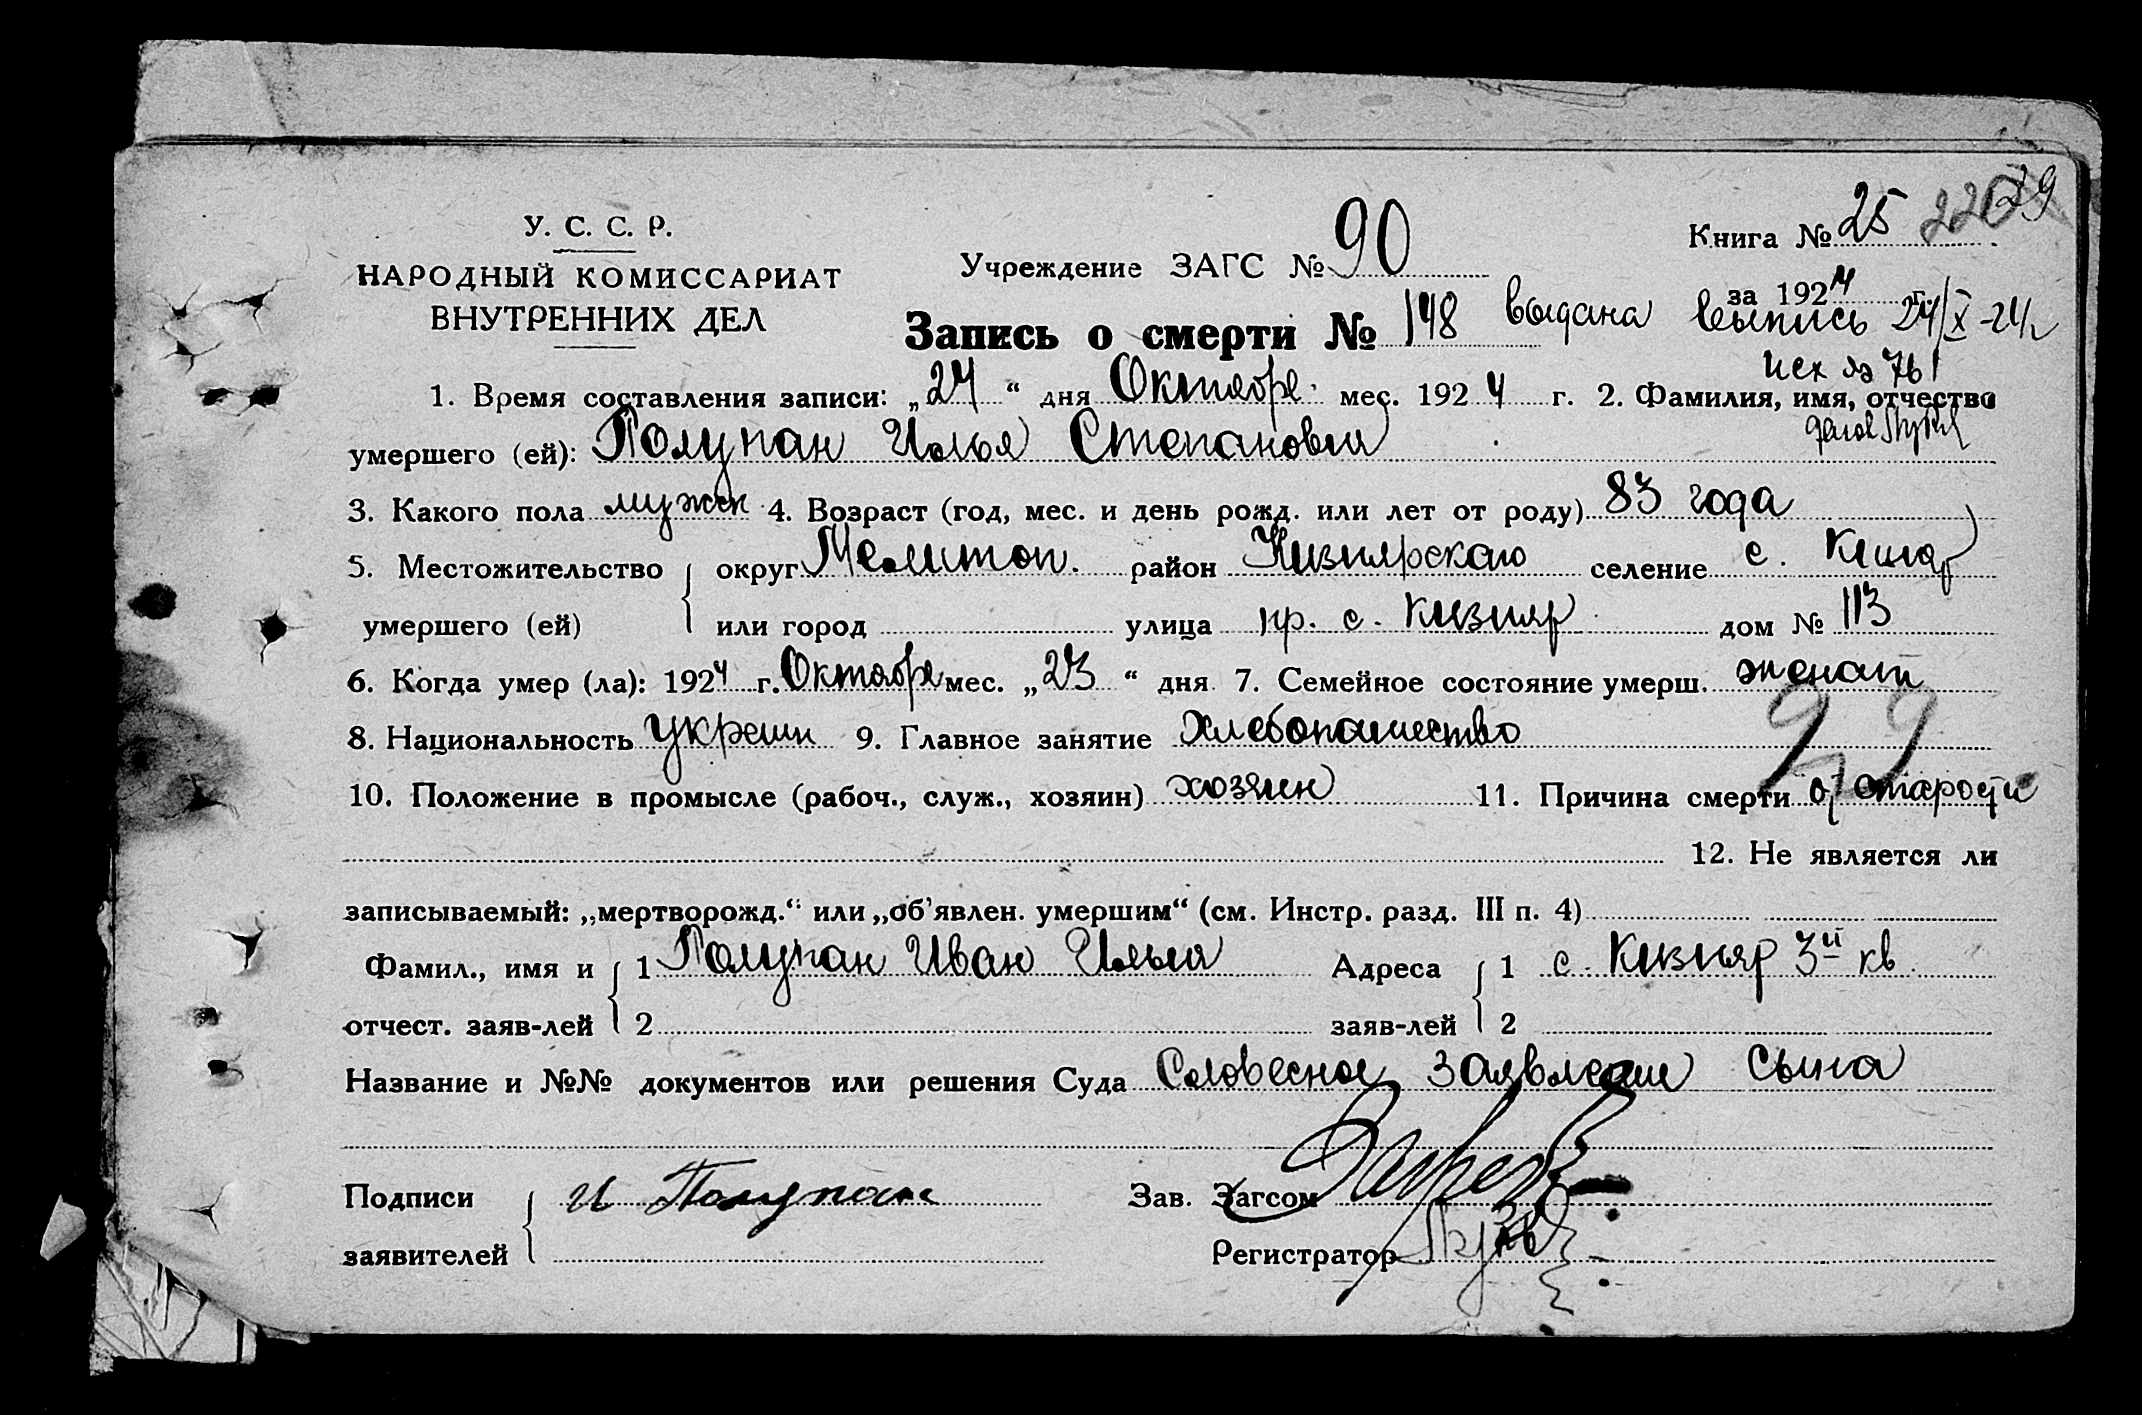 29
У. С. С. Р.
НАРОДНЫЙ КОМИССАРИАТ
ВНУТРЕННИХ ДЕЛ
Учреждение ЗАГС № 90
Книга № 25
за 1924 г.
Запись о смерти № 148 выдана выпись 24/X-24 г
Исх № 761
1. Время составления записи: „24“ дня Октябре мес. 1924 г. 2. Фамилия, имя, отчество
умершего (ей): Полупан Илья Степанович
3. Какого пола мужск 4. Возраст (год, мес. и день рожд. или лет от роду) 83 года
5. Местожительство округ Мелитоп. район Кизиярскаго селение с.
умершего (ей) или город улица пр. с. Кизияр дом № 113
6. Когда умер (ла): 1924 г. Октябре мес. „23“ дня 7. Семейное состояние умерш. женат
8. Национальность украин 9. Главное занятие хлебопашество
10. Положение в промысле (рабоч., служ., хозяин) хозяин 11. Причина смерти от старости
12. Не является ли
записываемый: „мертворожд.“ или „об’явлен. умершим“ (см. Инстр. разд. III п. 4)
29
Фамил., имя и 1 Полупан Иван Ильич Адреса 1 с. Кизияр 3й кв.
отчест. заяв-лей 2 заяв-лей 2
Название и №№ документов или решения Суда Словесное заявление сына
Подписи и Полупан Зав. Загсом
заявителей Регистратор